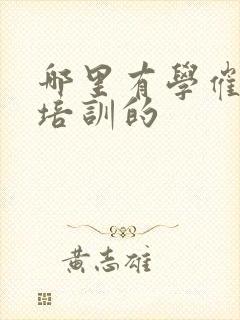 哪里有學催
培訓的
黄志雄